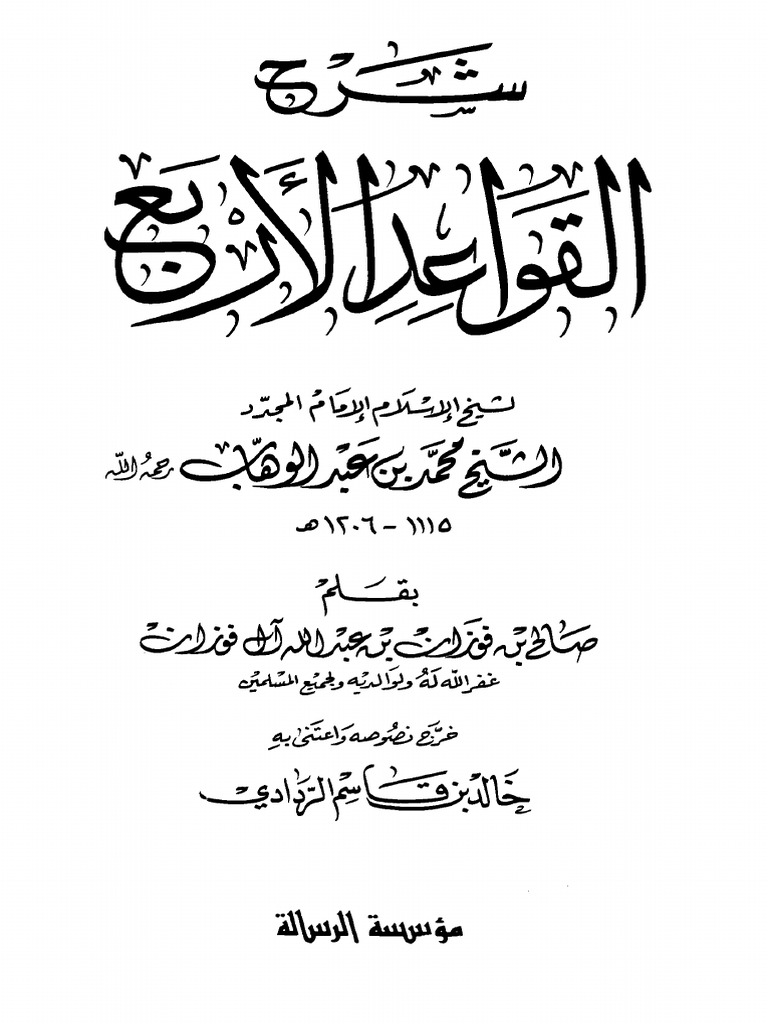 شرح
القواعد الأربع
لشيخ الإسلام الإمام المجدد
الشيخ محمد بن عبد الوهاب رحمه الله
١١١٥ - ١٢٠٦ هـ
بقلم
صالح بن فوزان بن عبد الله آل فوزان
غفر الله له ولوالديه ولجميع المسلمين
خرّج نصوصه واعتنى به
خالد بن قاسم الردادي
مؤسسة الرسالة